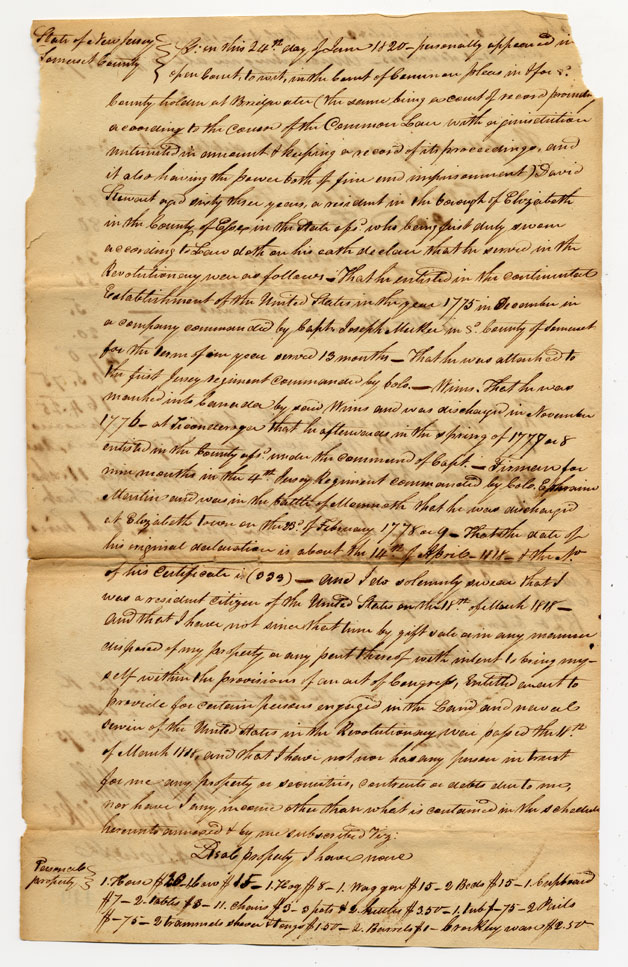 State of New Jersey
Somerset County
On this 24th day of June 1820 - personally appeared in
open Court, to wit, in the Court of Common pleas in & for sd.
County holden at Bridgwater (the same being a court of record proceeding
according to the course of the Common Law with a jurisdiction
unlimited in amount & keeping a record of its proceedings, and
it also having the power both of fine and imprisonment) David
Stewart aged sixty three years, a resident in the borough of Elizabeth
in the County of Essex in the State afsd. who being first duly sworn
according to Law doth on his oath declare that he served in the
Revolutionary war as follows - That he enlisted in the continental
Establishment of the United States in the year 1775 in December in
a company commanded by Capt. Joseph Meeker in sd. County of Somerset
for the term of one year served 13 months - That he was attached to
the first Jersey regiment commanded by Colo. - Wins. That he was
marched into Canada by said Wins and was discharged in November
1776 - at Ticonderoga that he afterwards in the spring of 1777 or 8
enlisted in the County afsd. under the command of Capt. - Firman for
nine months in the 4th Jersey Regiment commanded by Colo. Ephraim
Martin and was in the battle of Monmoth that he was discharged
at Elizabeth town on the 23d. of February 1778 or 9 - That the date of
his original declaration is about the 14th of April 1818 - & the No.
of his Certificate is (033) - and I do solemnly swear that I
was a resident citizen of the United States on the 18th of March 1818 -
and that I have not since that time by gift sale or in any manner
disposed of my property or any part thereof with intent to bring my-
self within the provisions of an act of Congress, Entitled an act to
provide for certain persons engaged in the Land and naval
service of the United States in the Revolutionary war passed the 18th
of March 1818 and that I have not nor has any person in trust
for me any property or securities, contracts or debts due to me,
nor have I any income other than what is contained in the schedule
hereunto annexed & by me subscribed Viz:
Real property I have none
Personal
property
1. Horse $20 1 Cow $15 - 1. Hog $8 - 1. Waggon $15 - 2 Beds $15 - 1. Cupboard
$7 - 2. tables $3 - 11. Chairs $3 - 3 pots & 2. kettles $3.50 - 1. tub $-75 - 2 Pails
$-75 - 2 trammels shovel & tongs $1.50 - 2. Barrels $1 - Crockery ware $2.50